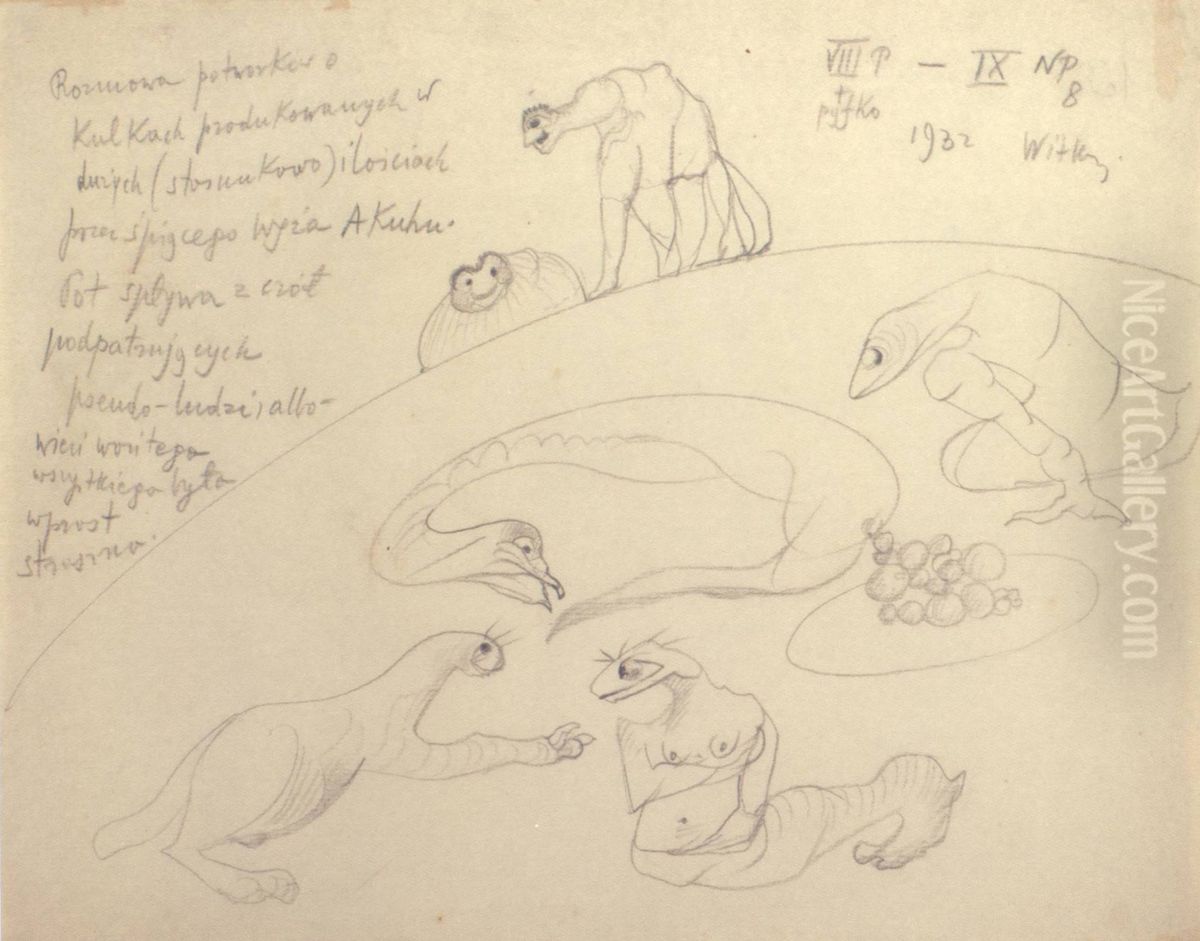 Rozmowa potworków o
kulkach produkowanych w
dużych (stosunkowo) ilościach
przez śpiącego węża AKuhu.
Pot spływa z czół
podpatrujących
pseudo-ludzi, albo-
wiem woń tego
wszystkiego była
wprost
straszna.
VIII P — IX NP
8
+
pyfko
1932 Witkacy
NiceArtGallery.com